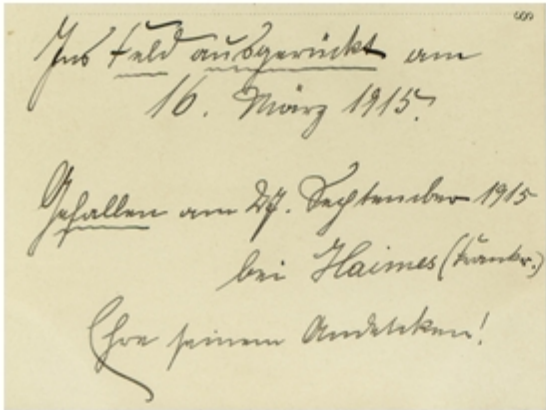 Ins Feld ausgerückt am
16. März 1915.
Gefallen am 27. September 1915
bei Haimes (Frankr.)
Ehre seinem Andenken!